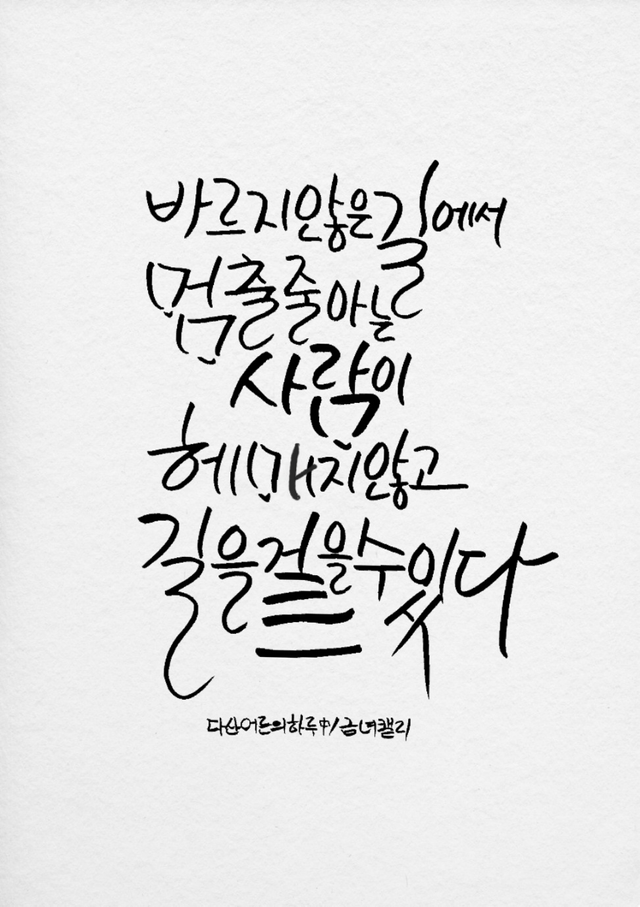 바르지 않은 길에서
멈출 줄 아는
사람이
헤매지 않고
길을 걸을 수 있다
다산어른의하루 中/금녀캘리